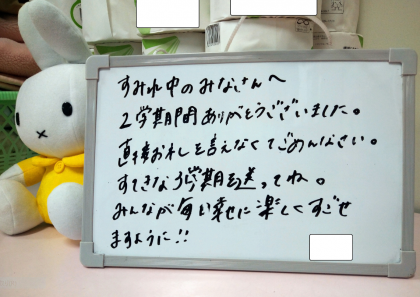 すみれ中のみなさんへ
2学期間ありがとうございました。
直接お礼を言えなくてごめんなさい。
すてきな3学期を送ってね。
みんなが毎日幸せに楽しくすごせ
ますように!!